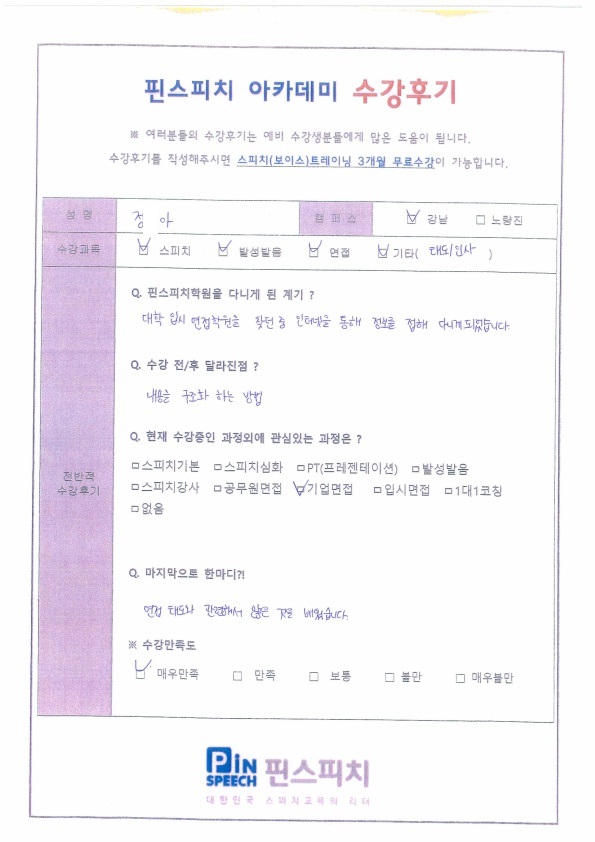 핀스피치 아카데미 수강후기
※ 여러분들의 수강후기는 예비 수강생분들에게 많은 도움이 됩니다.
수강후기를 작성해주시면 스피치(보이스)트레이닝 3개월 무료수강이 가능합니다.
성 명 정 아 캠 퍼 스 ☑ 강남 □ 노량진
수강과목 ☑ 스피치 ☑ 발성발음 ☑ 면접 ☑ 기타( 태도인사 )
전반적
수강후기
Q. 핀스피치학원을 다니게 된 계기 ?
대학 입시 면접학원을 찾던 중 인터넷을 통해 정보를 접해 다니게되었습니다.
Q. 수강 전/후 달라진점 ?
내용을 구조화 하는 방법
Q. 현재 수강중인 과정외에 관심있는 과정은 ?
□스피치기본 □스피치심화 □PT(프레젠테이션) □발성발음
□스피치강사 □공무원면접 ☑기업면접 □입시면접 □1대1코칭
□없음
Q. 마지막으로 한마디?!
면접 태도와 관련해서 많은 것을 배웠습니다.
※ 수강만족도
☑ 매우만족 □ 만족 □ 보통 □ 불만 □ 매우불만
PiN
SPEECH 핀스피치
대한민국 스피치교육의 리더